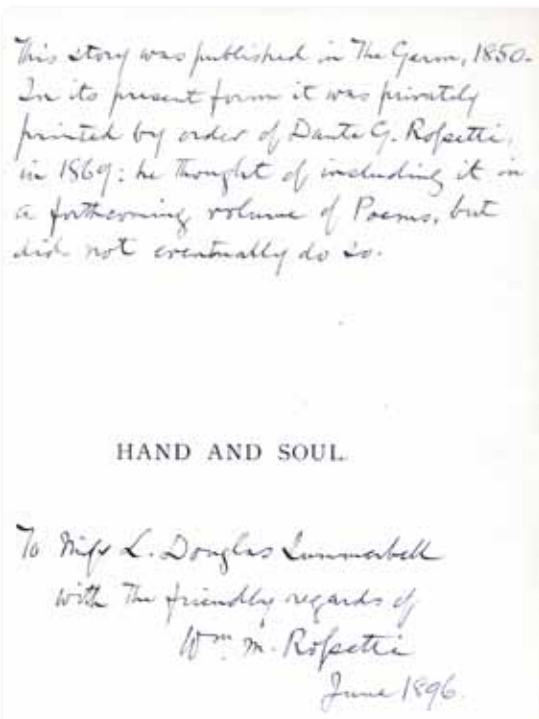 This story was published in The Germ, 1850.
In its present form it was privately
printed by order of Dante G. Roſsetti,
in 1869: he thought of including it in
a forthcoming volume of Poems, but
did not eventually do so.
HAND AND SOUL
To Miſs L. Douglas Summerbell
with the friendly regards of
Wm. M. Roſsetti
June 1896.